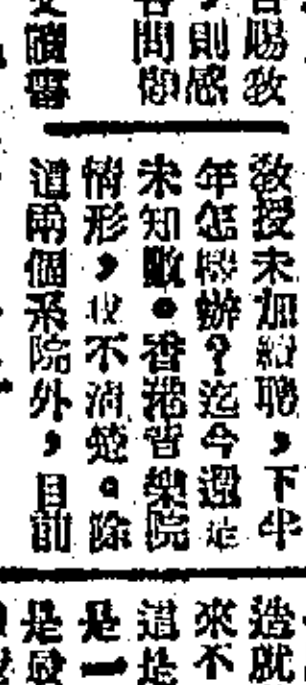 賜敎
，則感
問
書
敎授未加續聘，下半
年怎樣辦？迄今還是
未知數。香港音樂院
情形，我不清楚。除
這兩個系院外，目前
造就
來不
這是
是一
是最